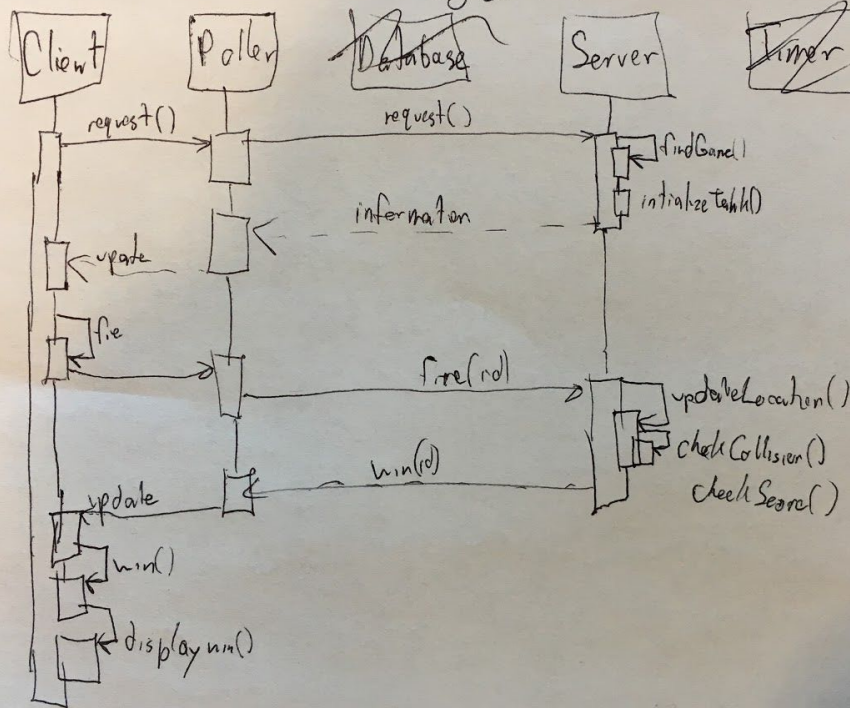 Client
Poller
Database
Server
Timer
request()
request()
findGame()
information
update
fire(id)
updateLocation()
checkCollision()
win(id)
update
win()
displaywin()